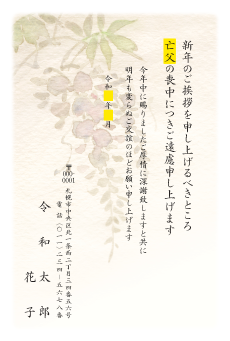 新年のご挨拶を申し上げるべきところ
亡父の喪中につきご遠慮申し上げます
今年中に賜りましたご厚情に深謝致しますと共に
明年も変らぬご交誼のほどお願い申し上げます
令和 年 月
〒000-0001
札幌市中央区北一条西二丁目三四番五六号
電話(〇一一)二三四-五六七八番
令和太郎
花子